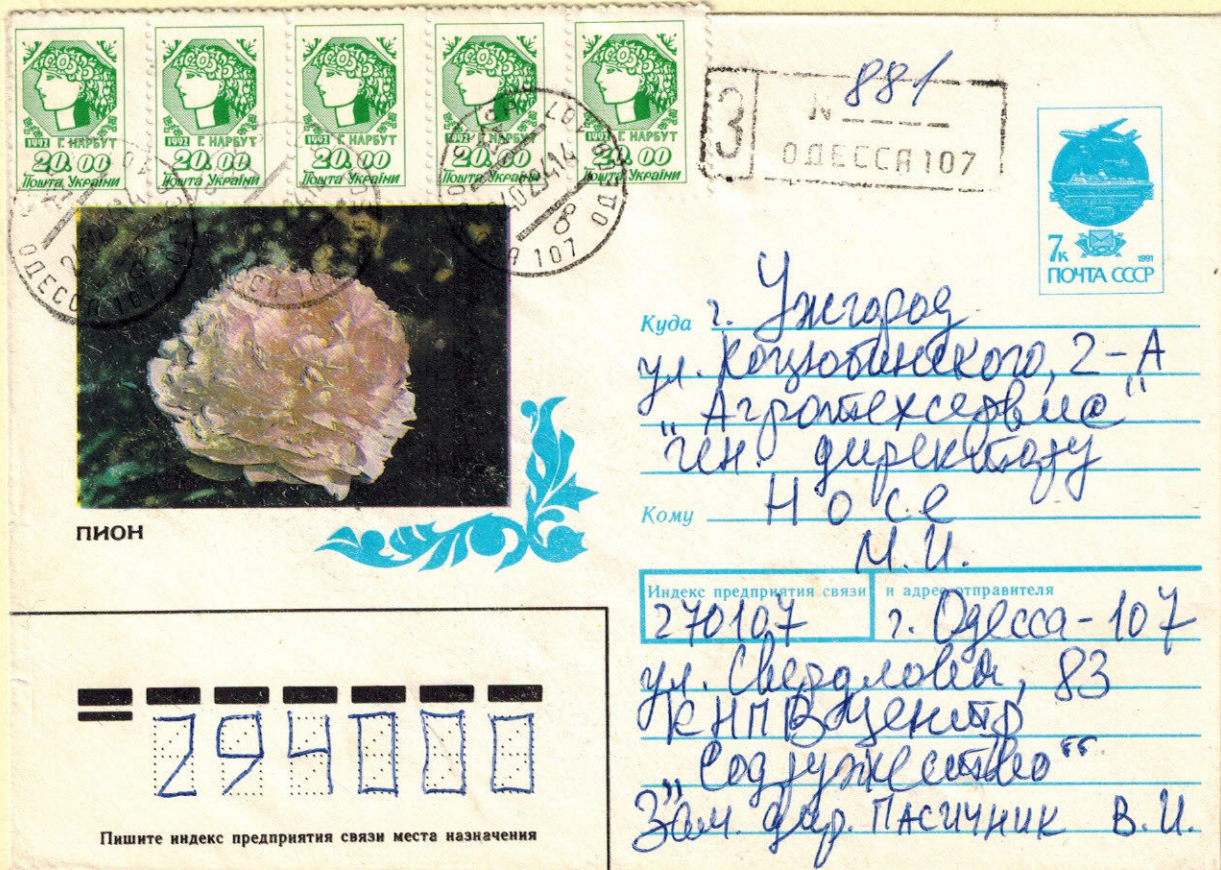 1992 Г. НАРБУТ
20.00
Пошта України
1992 Г. НАРБУТ
20.00
Пошта України
1992 Г. НАРБУТ
20.00
Пошта України
1992 Г. НАРБУТ
20.00
Пошта України
1992 Г. НАРБУТ
20.00
Пошта України
З
N 881
ОДЕССА 107
ОДЕССА 107
7к
1991
ПОЧТА СССР
Куда г. Ужгород
ул. Коцюбинского, 2-А
„Агротехсервис“
ген. директору
Кому Носе
М.И.
Индекс предприятия связи и адрес отправителя
270107 г. Одесса-107
ул. Свердлова, 83
КНПВ Центр
„Содружество“
Зам. дир. ПАСИЧНИК В.И.
ПИОН
294000
Пишите индекс предприятия связи места назначения